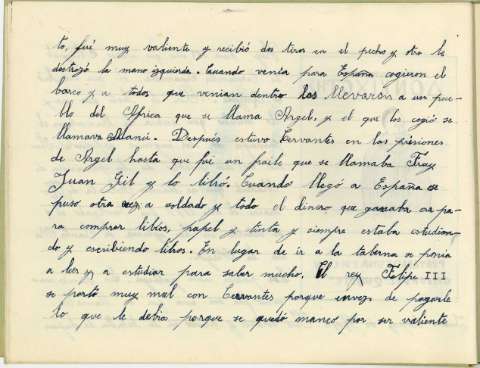 to, fué muy valiente y recibió dos tiros en el pecho y otro le
destrozó la mano izquierda. Cuando venía para España cogieron el
barco y a todos que venian dentro los llevaron a un pue-
blo del Africa que se llama Argel, y el que los cogió se
llamava Mamí. Después estuvo Cervantes en las prisiones
de Argel hasta que fué un fraile que se llamaba Fray
Juan Gil y lo libró. Cuando llegó a España se
puso otra vez a soldado y todo el dinero que ganaba era pa-
ra comprar libros, papel y tinta y siempre estaba estudian-
do y escribiendo libros. En lugar de ir a la taberna se ponia
a leer y a estudiar para saber mucho. El rey Felipe III
se portó muy mal con Cervantes porque en vez de pagarle
lo que le debia porque se quedó manco por ser valiente